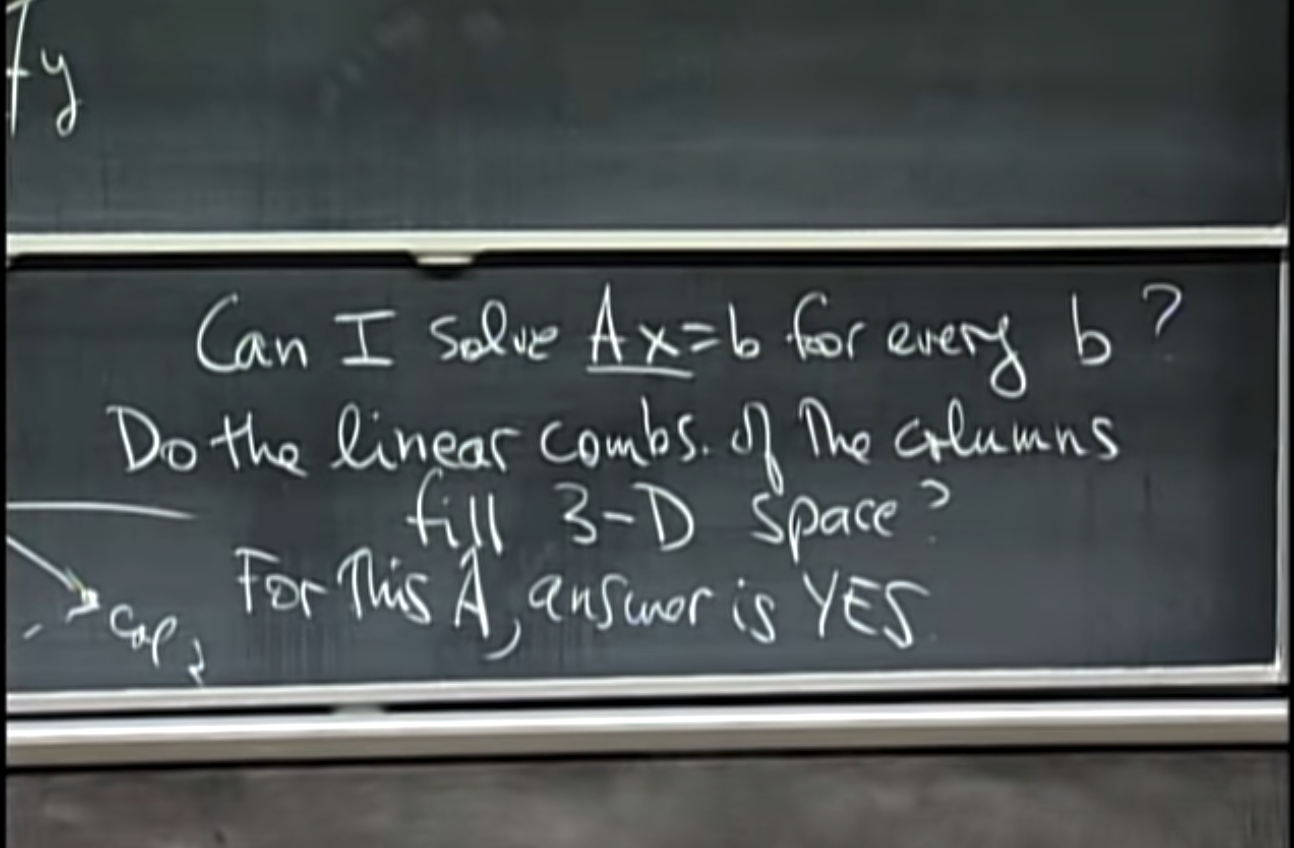 y
Can I solve Ax=b for every b?
Do the linear combs. of the columns
fill 3-D space?
For this A, answer is YES
col 2